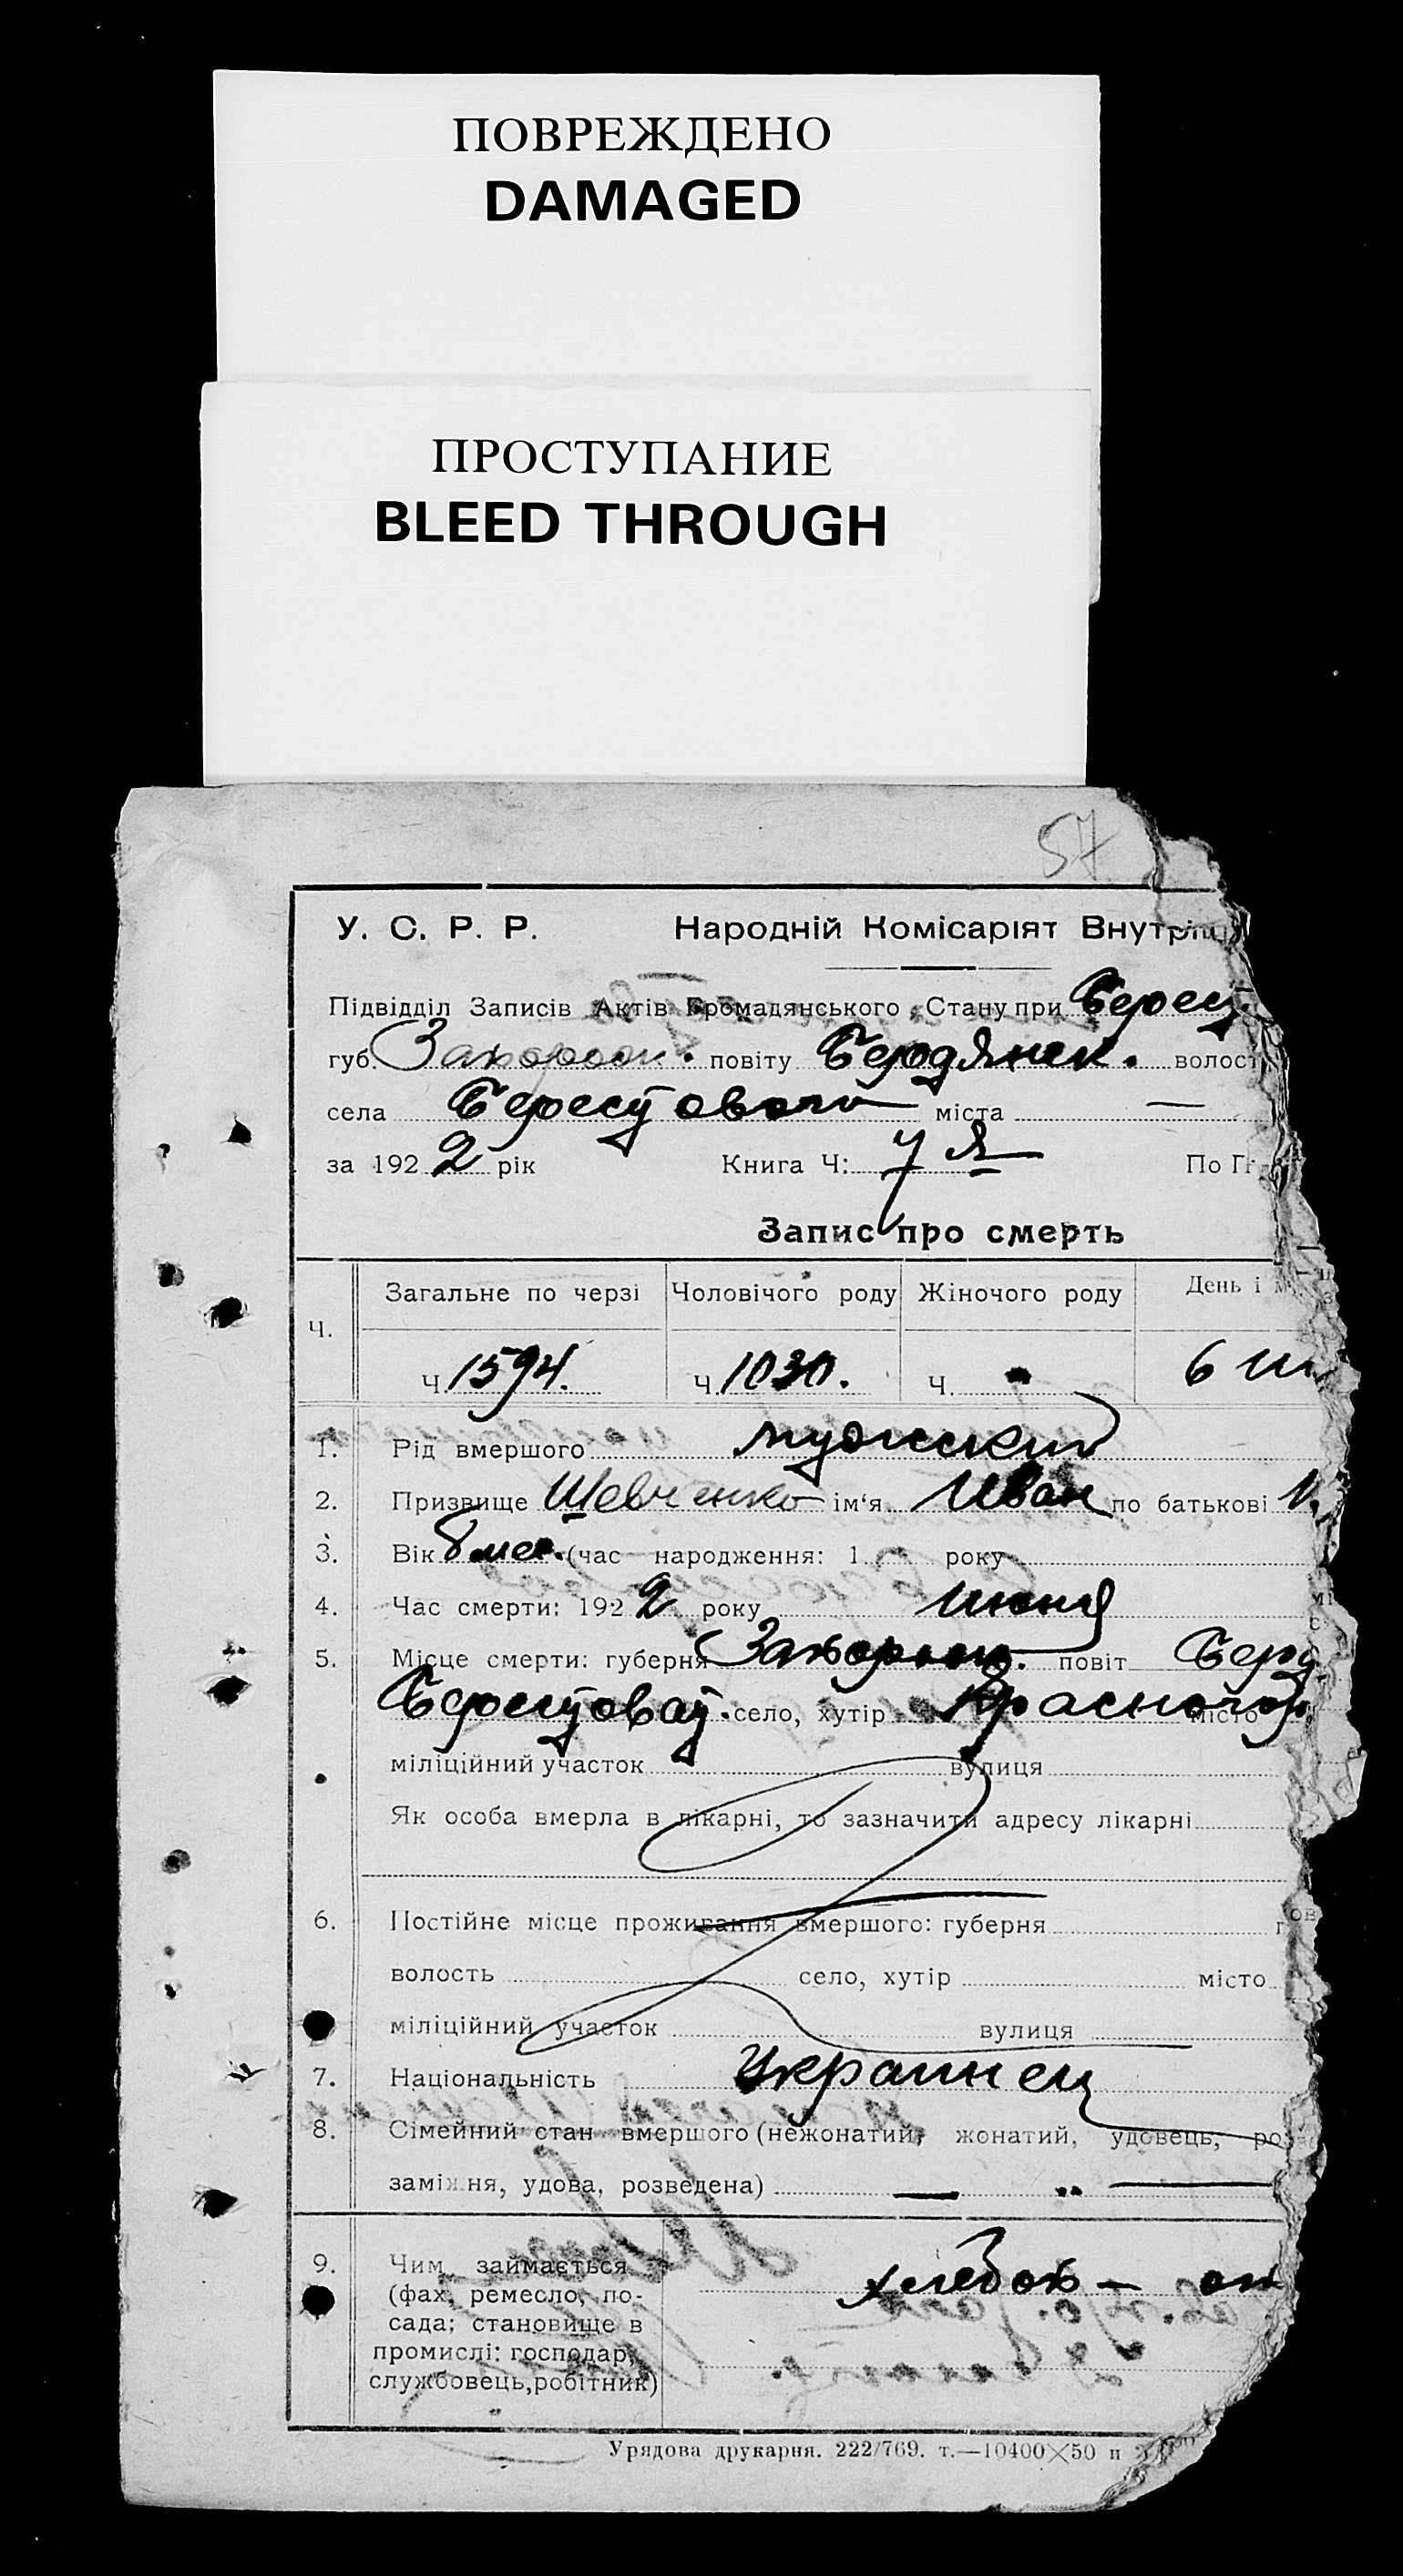 ПОВРЕЖДЕНО
DAMAGED
ПРОСТУПАНИЕ
BLEED THROUGH
57
У. С. Р. Р. Народній Комісаріят Внутріш
Підвідділ Записів Актів Громадянського Стану при Берест
губ. Запорож. повіту Бердянск. волост
села Берестового міста —
за 1922 рік Книга Ч: 7я По Гр
Запис про смерть
Ч. Загальне по черзі Чоловічого роду Жіночого роду День і м
Ч. 1594. Ч. 1030. Ч. 6
1. Рід вмершого мужской
2. Призвище Шевченко ім‘я Иван по батькові
3. Вік 8 мес. (час народження: 1 року
4. Час смерти: 1922 року июня
5. Місце смерти: губерня Запорож. повіт Берд
Берестоват. село, хутір місто
міліційний участок вулиця
Як особа вмерла в лікарні, то зазначити адресу лікарні
6. Постійне місце проживання вмершого: губерня
волость село, хутір місто
міліційний участок вулиця
7. Національність Украинец
8. Сімейний стан вмершого (нежонатий, жонатий, удовець, ро
заміжня, удова, розведена) —
9. Чим займається
(фах, ремесло, по-
сада; становище в
промислі: господар,
службовець, робітник)
хлебоп—
Урядова друкарня. 222/769. т.—10400×50 п